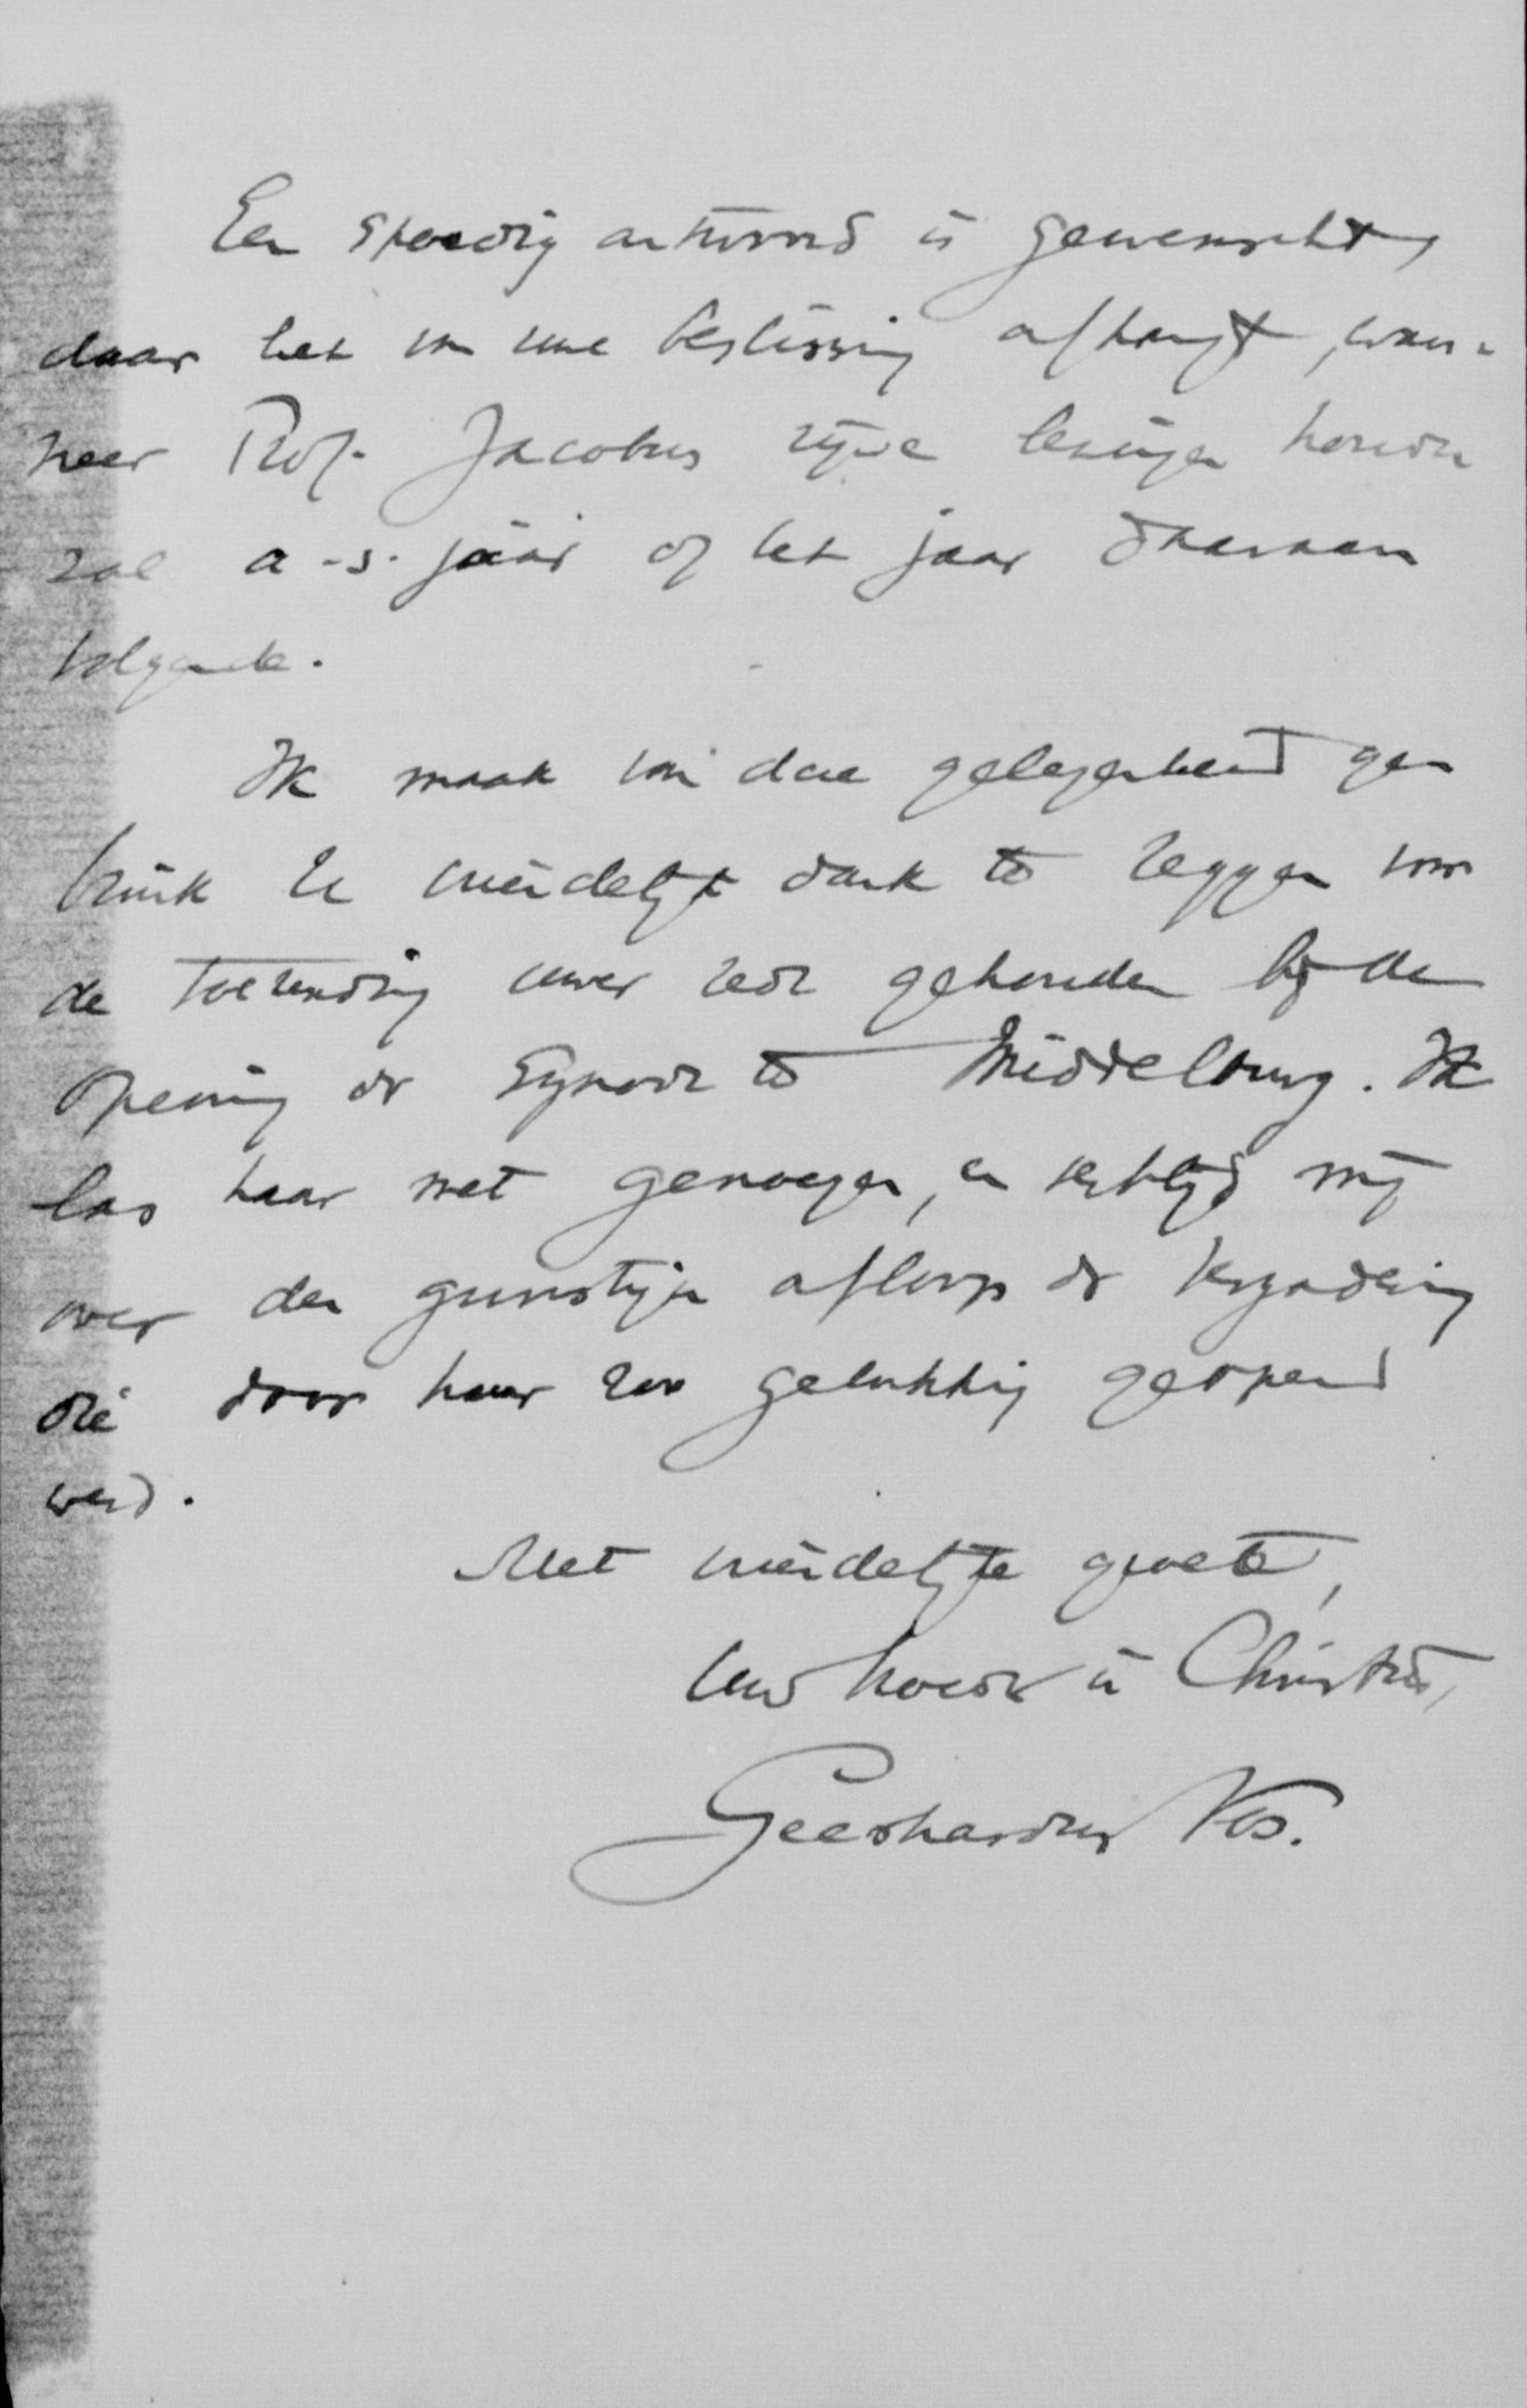 Een spoedig antwoord is gewenscht,
daar het van uwe beslissing afhangt, wan-
neer Prof. Jacobus zijne lezingen houden
zal a.s. jaar of het jaar daaraan
volgende.
Ik maak van deze gelegenheid ge-
bruik U vriendelijk dank te zeggen voor
de toezending uwer rede gehouden bij de
opening der Synode te Middelburg. Ik
las haar met genoegen, en verblijd mij
over den gunstigen afloop der vergadering
die door haar zoo gelukkig geopend
werd.
Met vriendelijke groete,
Uw broeder in Christus,
Geerhardus Vos.